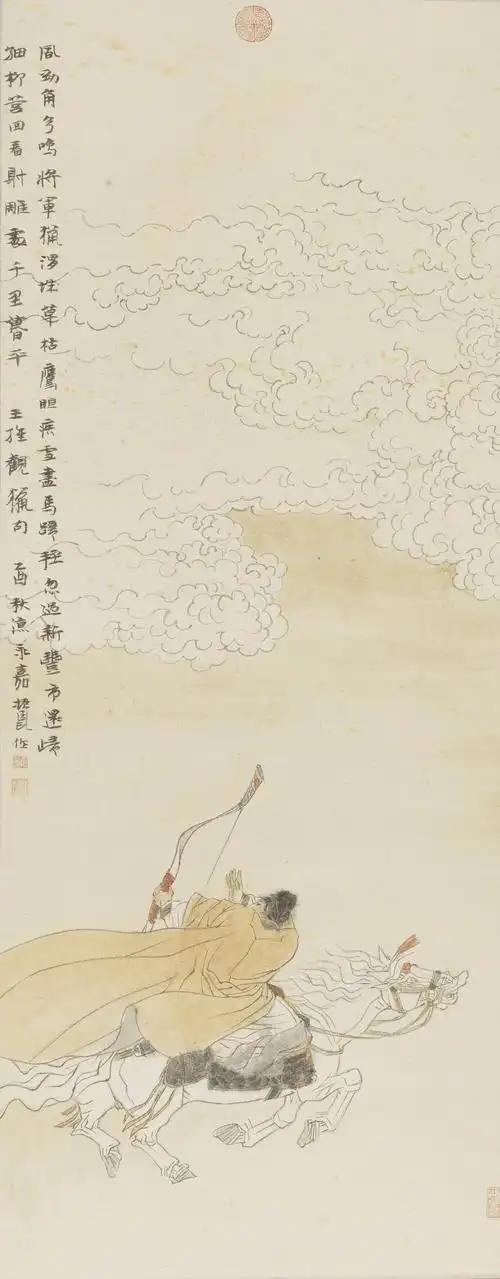 風勁角弓鳴將軍獵渭城草枯鷹眼疾雪盡馬蹄輕忽過新豐市還歸
細柳營回看射雕處千里暮平 王維觀獵句 乙酉秋永嘉作